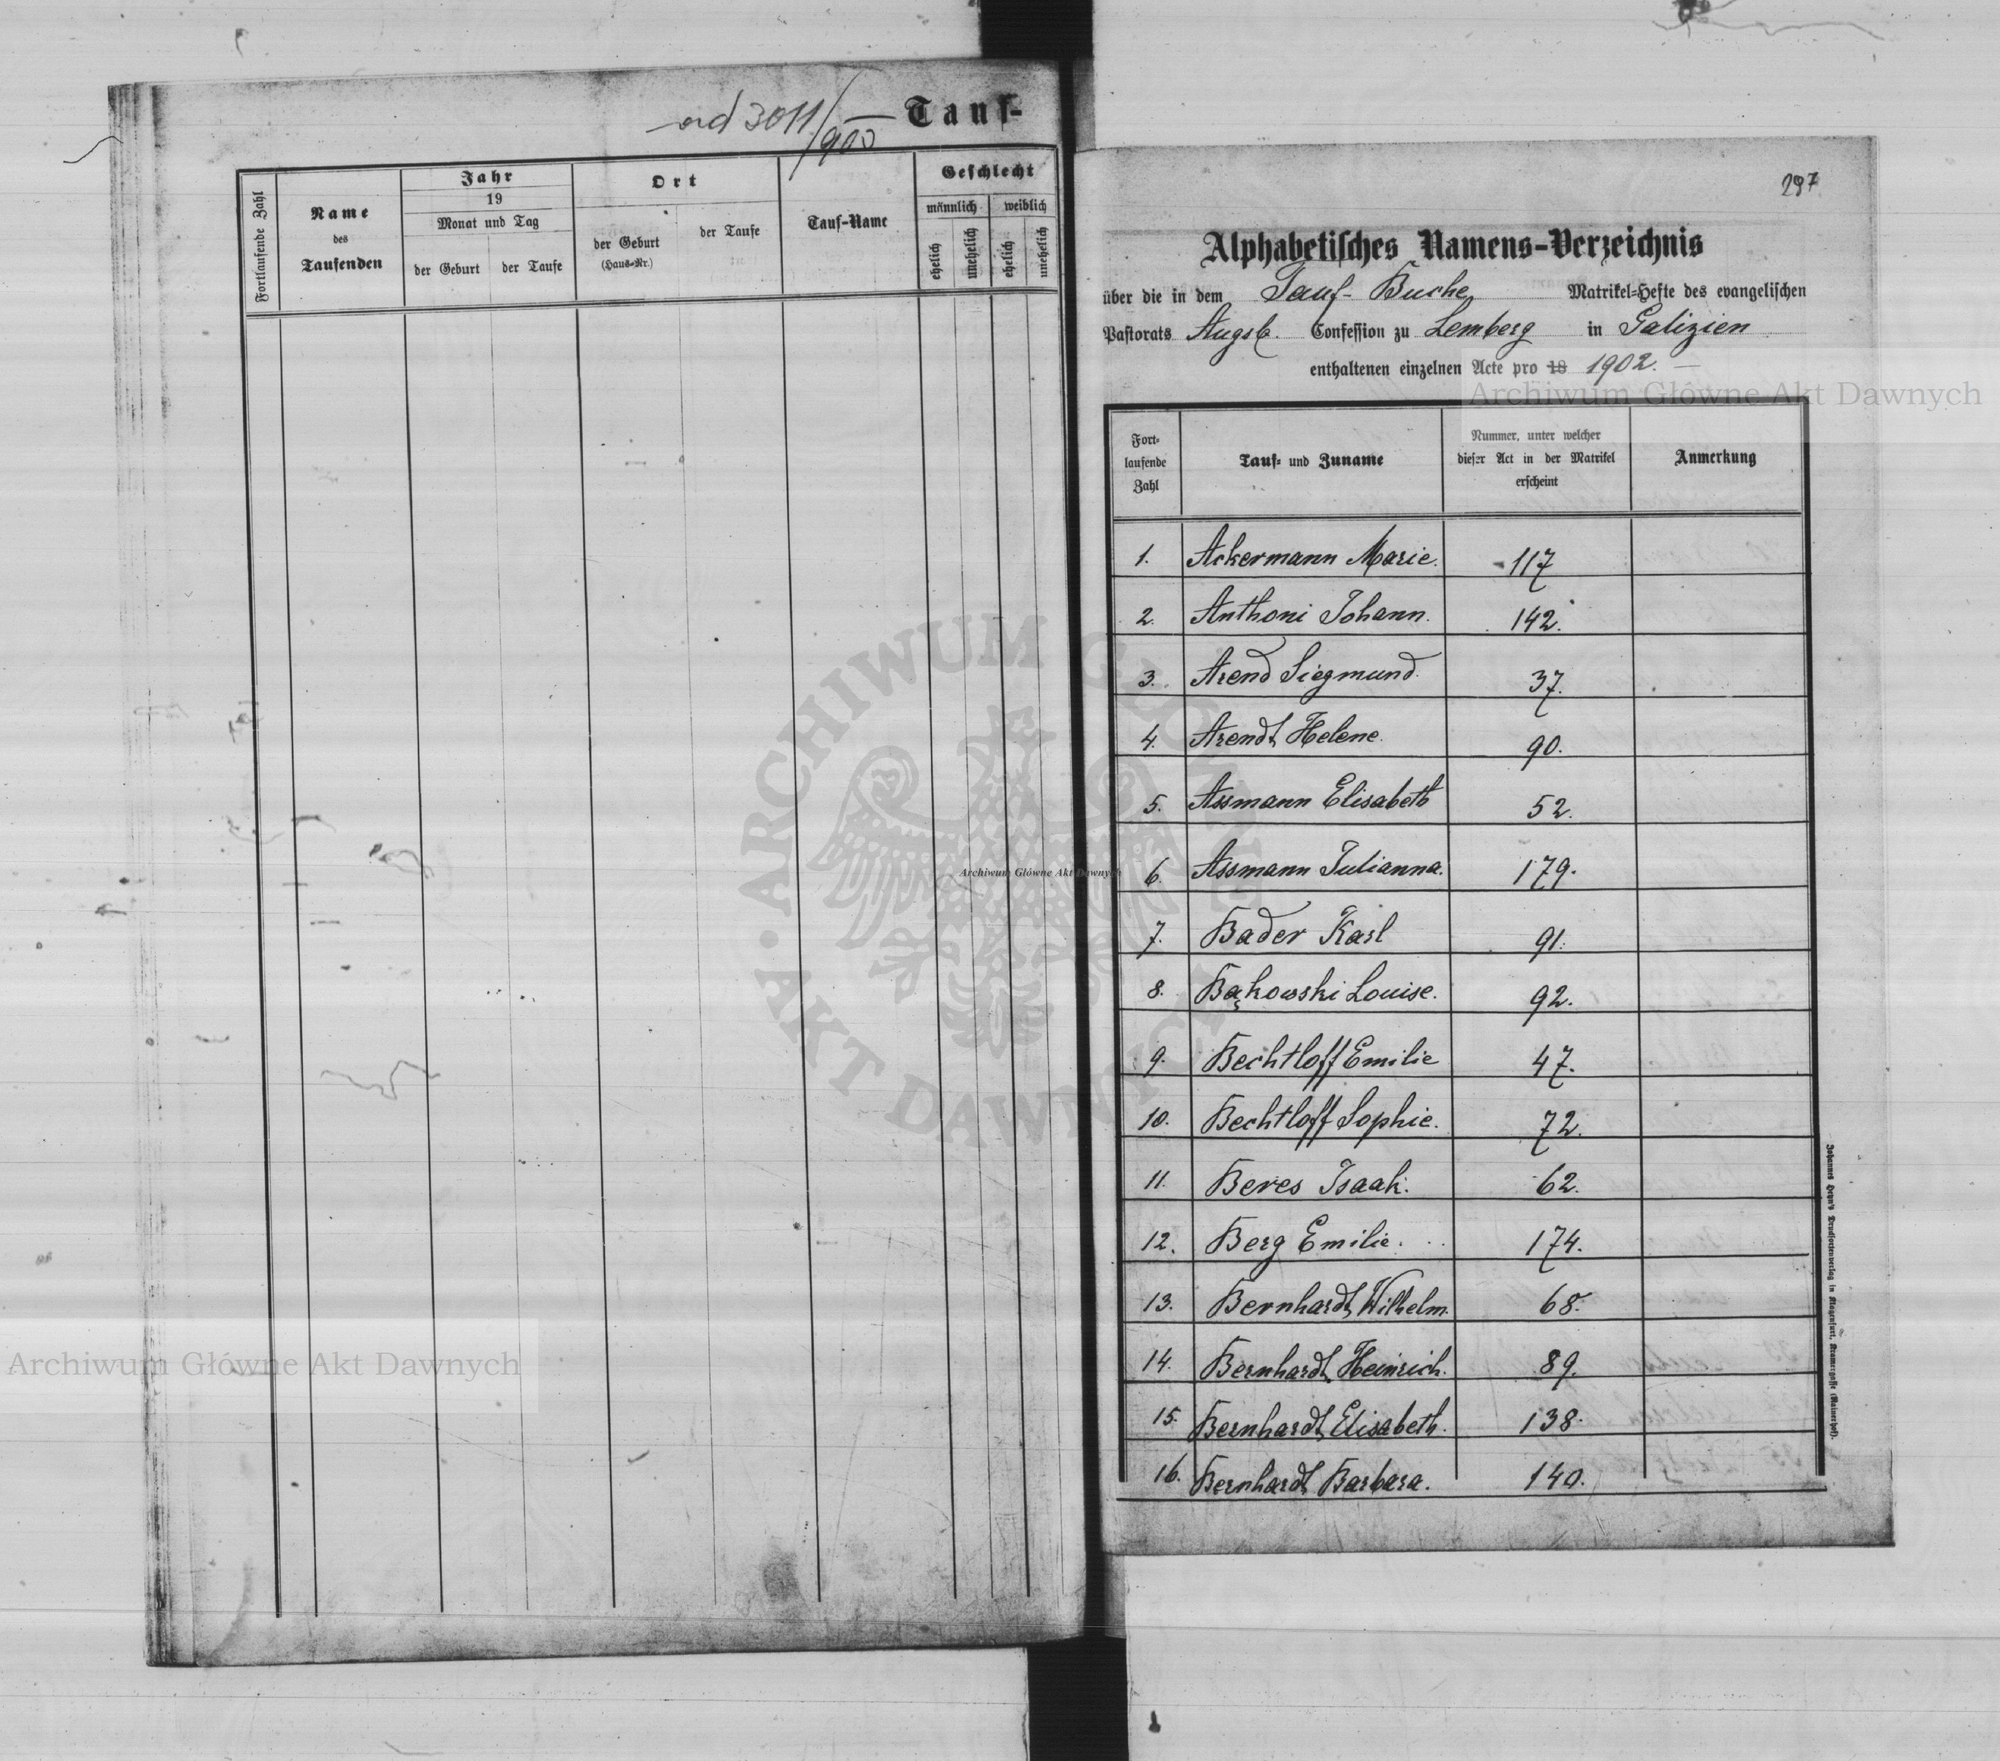 ad 3011/900
Tauf-
Fortlaufende Zahl
Name
des
Taufenden
Jahr
19
Monat und Tag
der Geburt
der Taufe
Ort
der Geburt
(Haus-Nr.)
der Taufe
Tauf-Name
Geschlecht
männlich
weiblich
ehelich
unehelich
ehelich
unehelich
297
Alphabetisches Namens-Verzeichnis
über die in dem Tauf-Buche Matrikel-Hefte des evangelischen
Pastorats Augsb. Confession zu Lemberg in Galizien
enthaltenen einzelnen Acte pro 18 1902.
Fort-
laufende
Zahl
Tauf- und Zuname
Nummer, unter welcher
dieser Act in der Matrikel
erscheint
Anmerkung
1. Ackermann Marie. 117
2. Anthoni Johann. 142.
3. Arend Siegmund. 37.
4. Arendt Helene. 90.
5. Assmann Elisabeth 52.
6. Assmann Julianna. 179.
7. Bader Karl 91.
8. Bąkowski Louise. 92.
9. Bechtloff Emilie 47.
10. Bechtloff Sophie. 72.
11. Beres Isaak. 62.
12. Berg Emilie. 174.
13. Bernhardt Wilhelm. 68.
14. Bernhardt Heinrich. 89.
15. Bernhardt Elisabeth. 138.
16. Bernhardt Barbara. 140.
Johannes Heyn's Drucksortenverlag in Klagenfurt, Kramergasse (Mainerhof).
Archiwum Główne Akt Dawnych
Archiwum Główne Akt Dawnych
Archiwum Główne Akt Dawnych
ARCHIWUM GŁÓWNE AKT DAWNYCH